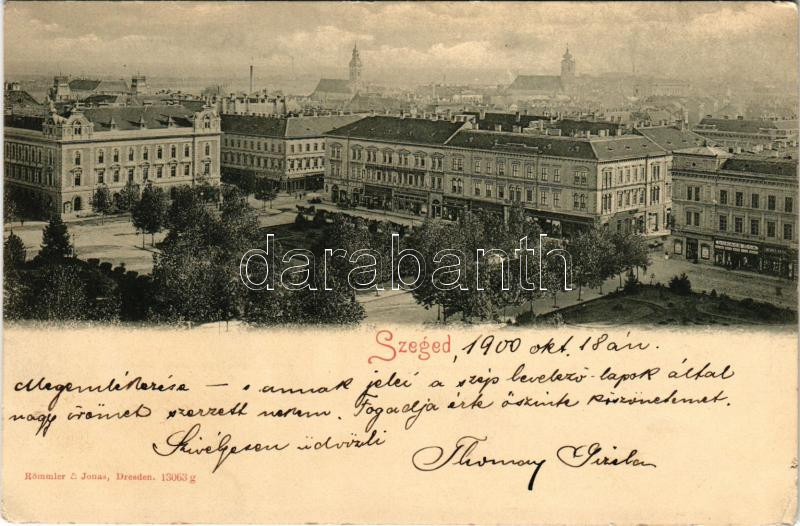 darabanth
Szeged, 1900 okt. 18án.
Megemlékezése – s annak jelei a szép levelező-lapok által
nagy örömet szerzett nekem. Fogadja érte őszinte köszönetemet.
Szívélyesen üdvözli
Thomay Gizela
Römmler & Jonas, Dresden. 13063 g